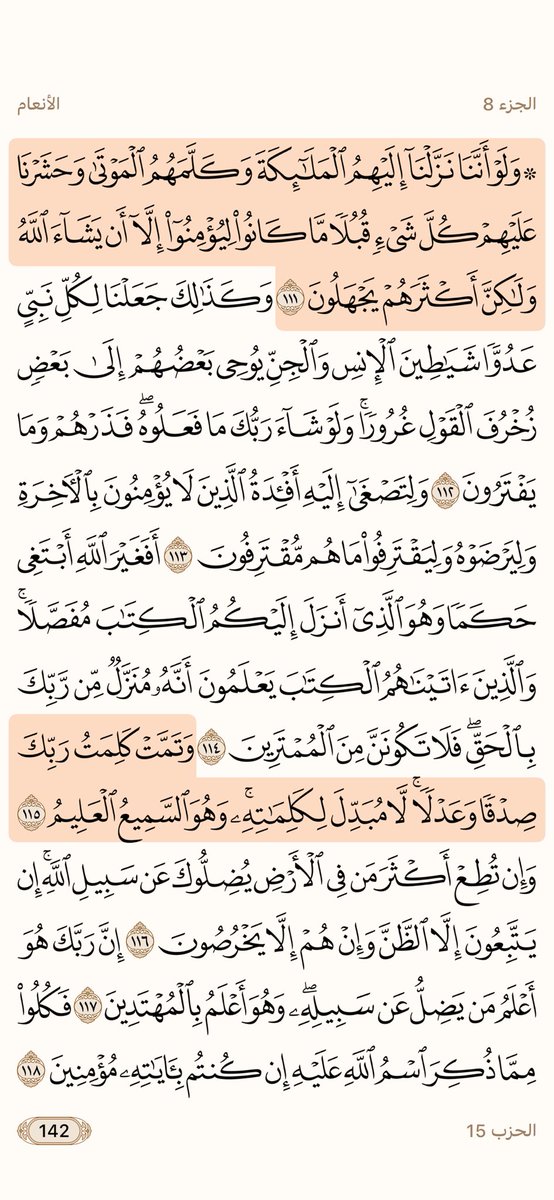 الجزء 8
الأنعام
۞ وَلَوْ أَنَّنَا نَزَّلْنَآ إِلَيْهِمُ ٱلْمَلَٰٓئِكَةَ وَكَلَّمَهُمُ ٱلْمَوْتَىٰ وَحَشَرْنَا
عَلَيْهِمْ كُلَّ شَىْءٍ قُبُلًا مَّا كَانُوا۟ لِيُؤْمِنُوٓا۟ إِلَّآ أَن يَشَآءَ ٱللَّهُ
وَلَٰكِنَّ أَكْثَرَهُمْ يَجْهَلُونَ ١١١ وَكَذَٰلِكَ جَعَلْنَا لِكُلِّ نَبِىٍّ
عَدُوًّا شَيَٰطِينَ ٱلْإِنسِ وَٱلْجِنِّ يُوحِى بَعْضُهُمْ إِلَىٰ بَعْضٍ
زُخْرُفَ ٱلْقَوْلِ غُرُورًا ۚ وَلَوْ شَآءَ رَبُّكَ مَا فَعَلُوهُ ۖ فَذَرْهُمْ وَمَا
يَفْتَرُونَ ١١٢ وَلِتَصْغَىٰٓ إِلَيْهِ أَفْـِٔدَةُ ٱلَّذِينَ لَا يُؤْمِنُونَ بِٱلْـَٔاخِرَةِ
وَلِيَرْضَوْهُ وَلِيَقْتَرِفُوا۟ مَا هُم مُّقْتَرِفُونَ ١١٣ أَفَغَيْرَ ٱللَّهِ أَبْتَغِى
حَكَمًا وَهُوَ ٱلَّذِىٓ أَنزَلَ إِلَيْكُمُ ٱلْكِتَٰبَ مُفَصَّلًا ۚ
وَٱلَّذِينَ ءَاتَيْنَٰهُمُ ٱلْكِتَٰبَ يَعْلَمُونَ أَنَّهُۥ مُنَزَّلٌ مِّن رَّبِّكَ
بِٱلْحَقِّ ۖ فَلَا تَكُونَنَّ مِنَ ٱلْمُمْتَرِينَ ١١٤ وَتَمَّتْ كَلِمَتُ رَبِّكَ
صِدْقًا وَعَدْلًا ۚ لَّا مُبَدِّلَ لِكَلِمَٰتِهِۦ ۚ وَهُوَ ٱلسَّمِيعُ ٱلْعَلِيمُ ١١٥
وَإِن تُطِعْ أَكْثَرَ مَن فِى ٱلْأَرْضِ يُضِلُّوكَ عَن سَبِيلِ ٱللَّهِ ۚ إِن
يَتَّبِعُونَ إِلَّا ٱلظَّنَّ وَإِنْ هُمْ إِلَّا يَخْرُصُونَ ١١٦ إِنَّ رَبَّكَ هُوَ
أَعْلَمُ مَن يَضِلُّ عَن سَبِيلِهِۦ ۖ وَهُوَ أَعْلَمُ بِٱلْمُهْتَدِينَ ١١٧ فَكُلُوا۟
مِمَّا ذُكِرَ ٱسْمُ ٱللَّهِ عَلَيْهِ إِن كُنتُم بِـَٔايَٰتِهِۦ مُؤْمِنِينَ ١١٨
الحزب 15
142